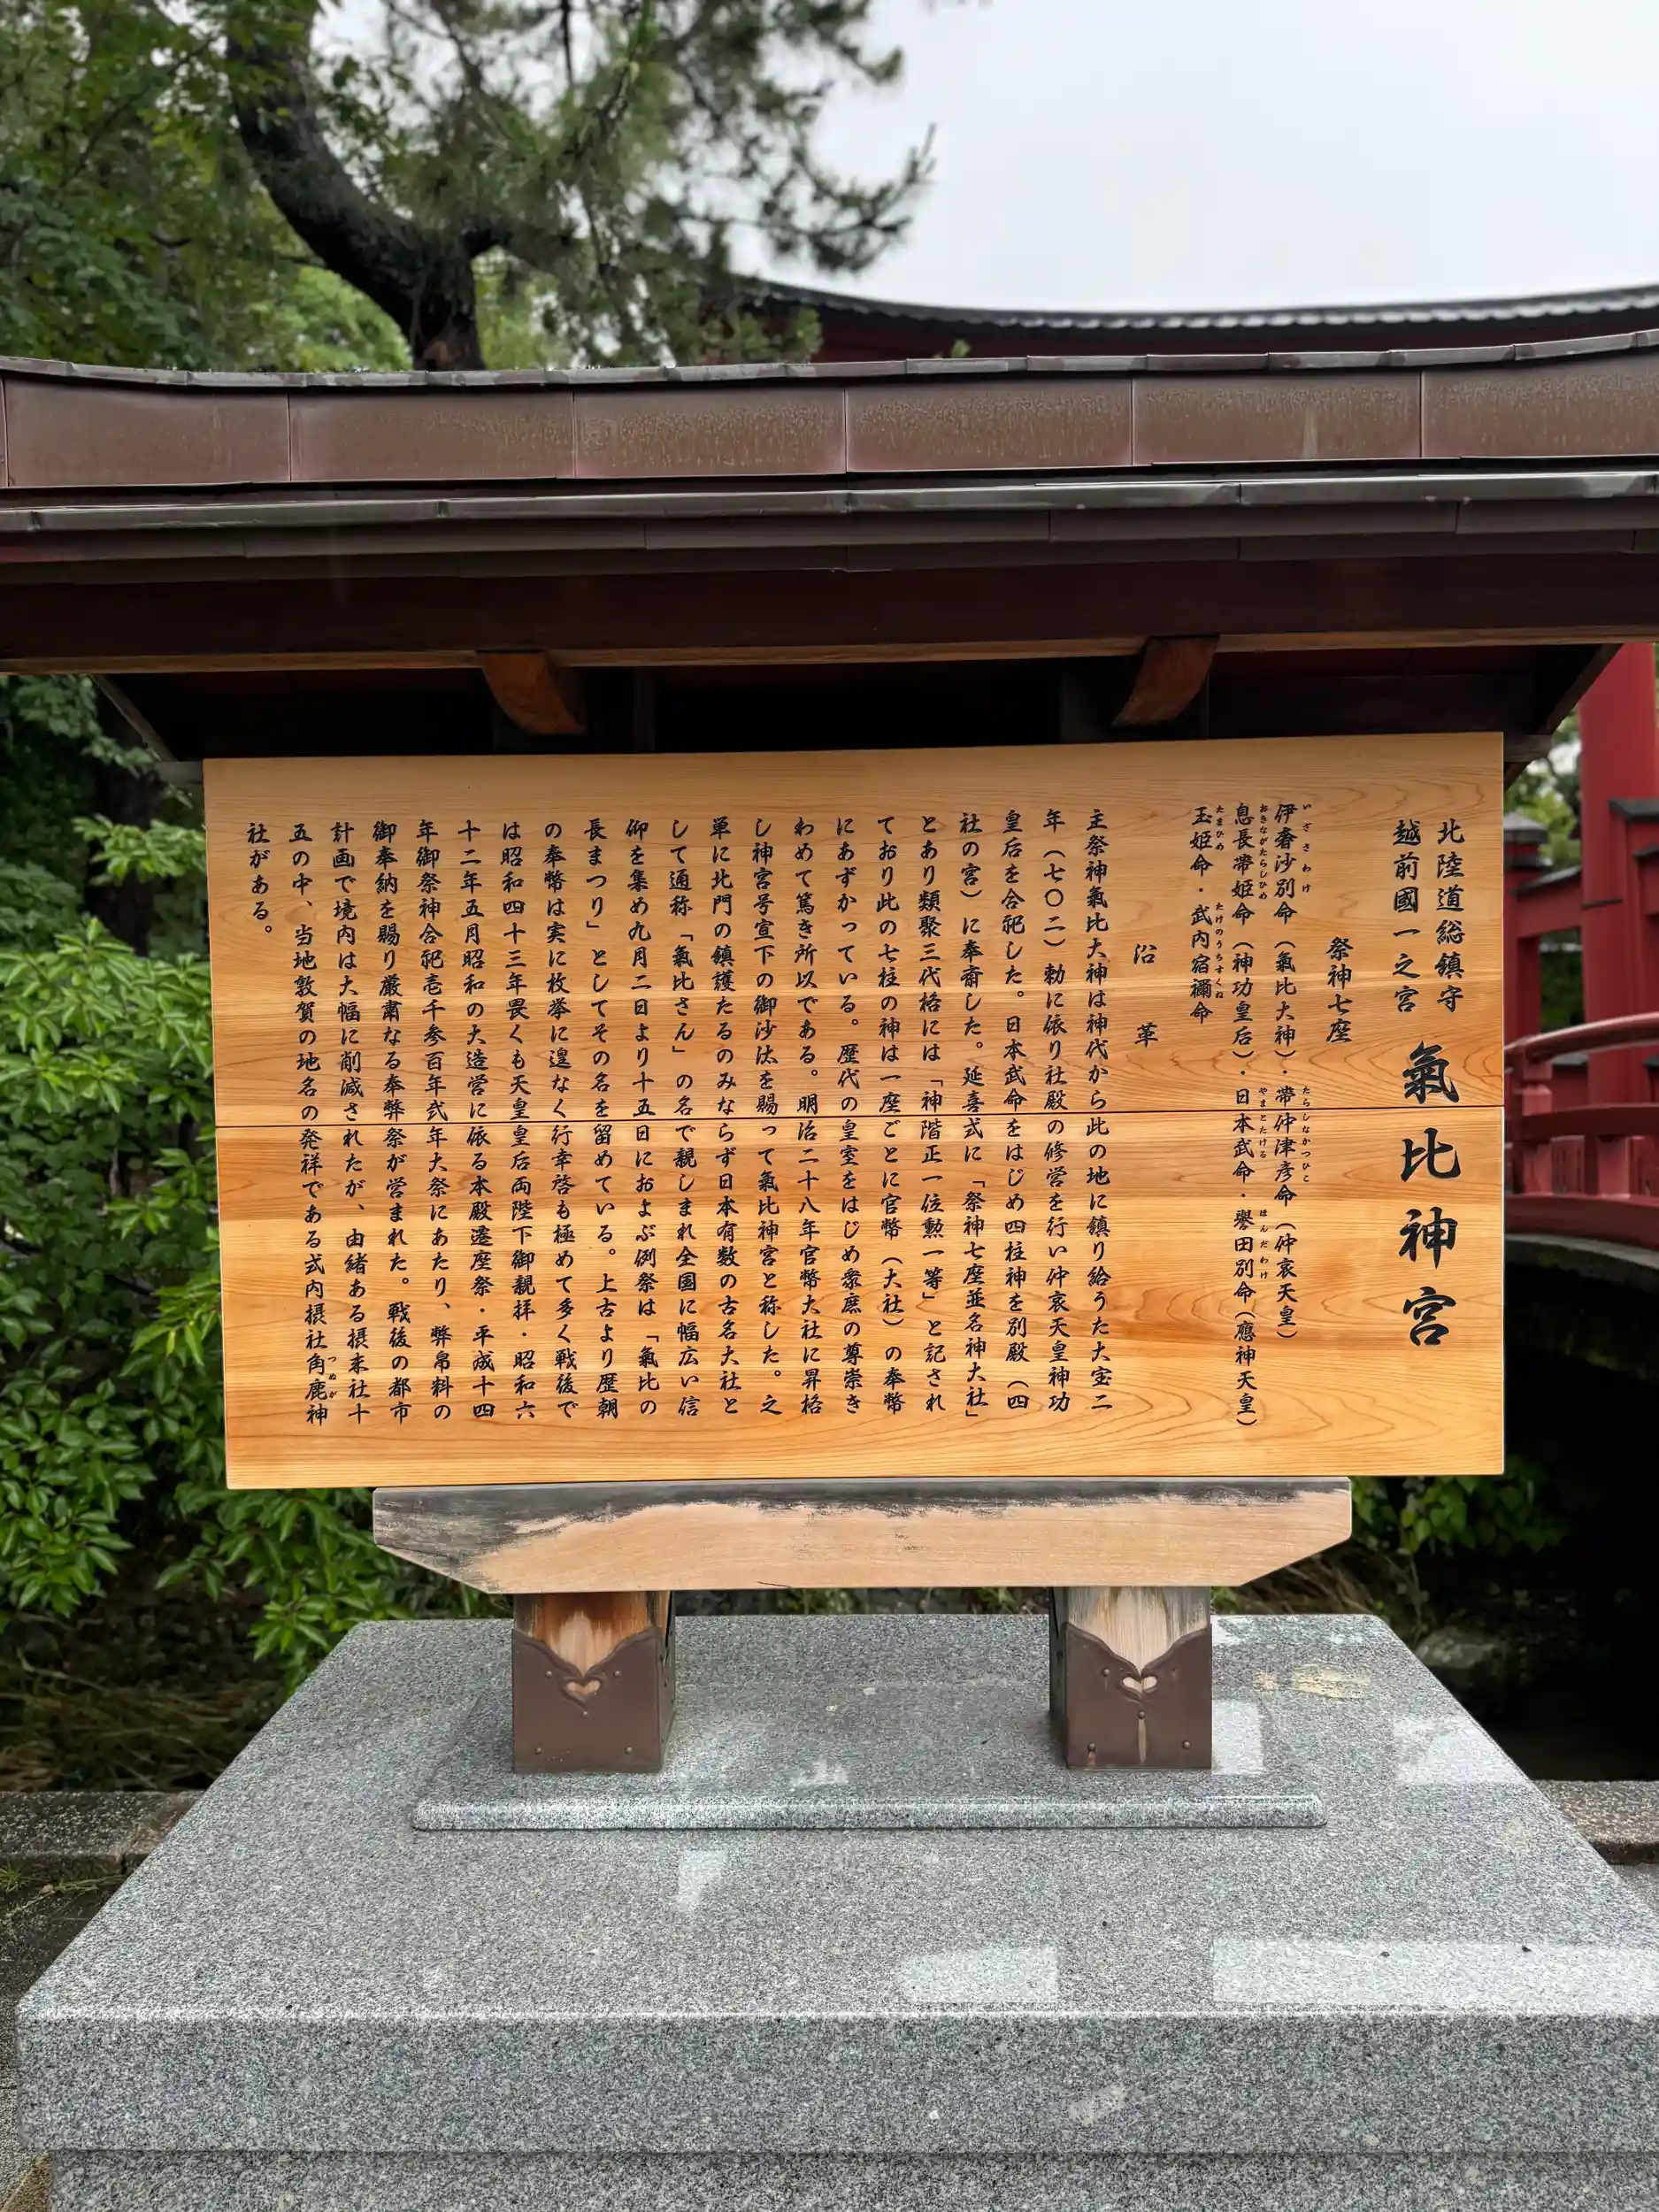 北陸道総鎮守
越前國一之宮
氣比神宮
祭神七座
伊奢沙別命（氣比大神）・帶仲津彦命（仲哀天皇）
いざさわけ
たらしなかつひこ
息長帶姫命（神功皇后）・日本武命・譽田別命（應神天皇）
おきながたらしひめ
やまとたける
ほんだわけ
玉姫命・武内宿禰命
たまひめ
たけのうちすくね
沿革
主祭神氣比大神は神代から此の地に鎮り給うた大宝二
年（七〇二）勅に依り社殿の修営を行い仲哀天皇神功
皇后を合祀した。日本武命をはじめ四柱神を別殿（四
社の宮）に奉斎した。延喜式に「祭神七座並名神大社」
とあり類聚三代格には「神階正一位勲一等」と記され
ており此の七柱の神は一座ごとに官幣（大社）の奉幣
にあずかっている。歴代の皇室をはじめ衆庶の尊崇き
わめて篤き所以である。明治二十八年官幣大社に昇格
し神宮号宣下の御沙汰を賜って氣比神宮と称した。之
単に北門の鎮護たるのみならず日本有数の古名大社と
して通称「氣比さん」の名で親しまれ全国に幅広い信
仰を集め九月二日より十五日におよぶ例祭は「氣比の
長まつり」としてその名を留めている。上古より歴朝
の奉幣は実に枚挙に遑なく行幸啓も極めて多く戦後で
は昭和四十三年畏くも天皇皇后両陛下御親拝・昭和六
十二年五月昭和の大造営に依る本殿遷座祭・平成十四
年御祭神合祀壱千参百年式年大祭にあたり、弊帛料の
御奉納を賜り厳粛なる奉弊祭が営まれた。戦後の都市
計画で境内は大幅に削減されたが、由緒ある摂末社十
五の中、当地敦賀の地名の発祥である式内摂社角鹿神
つぬが
社がある。